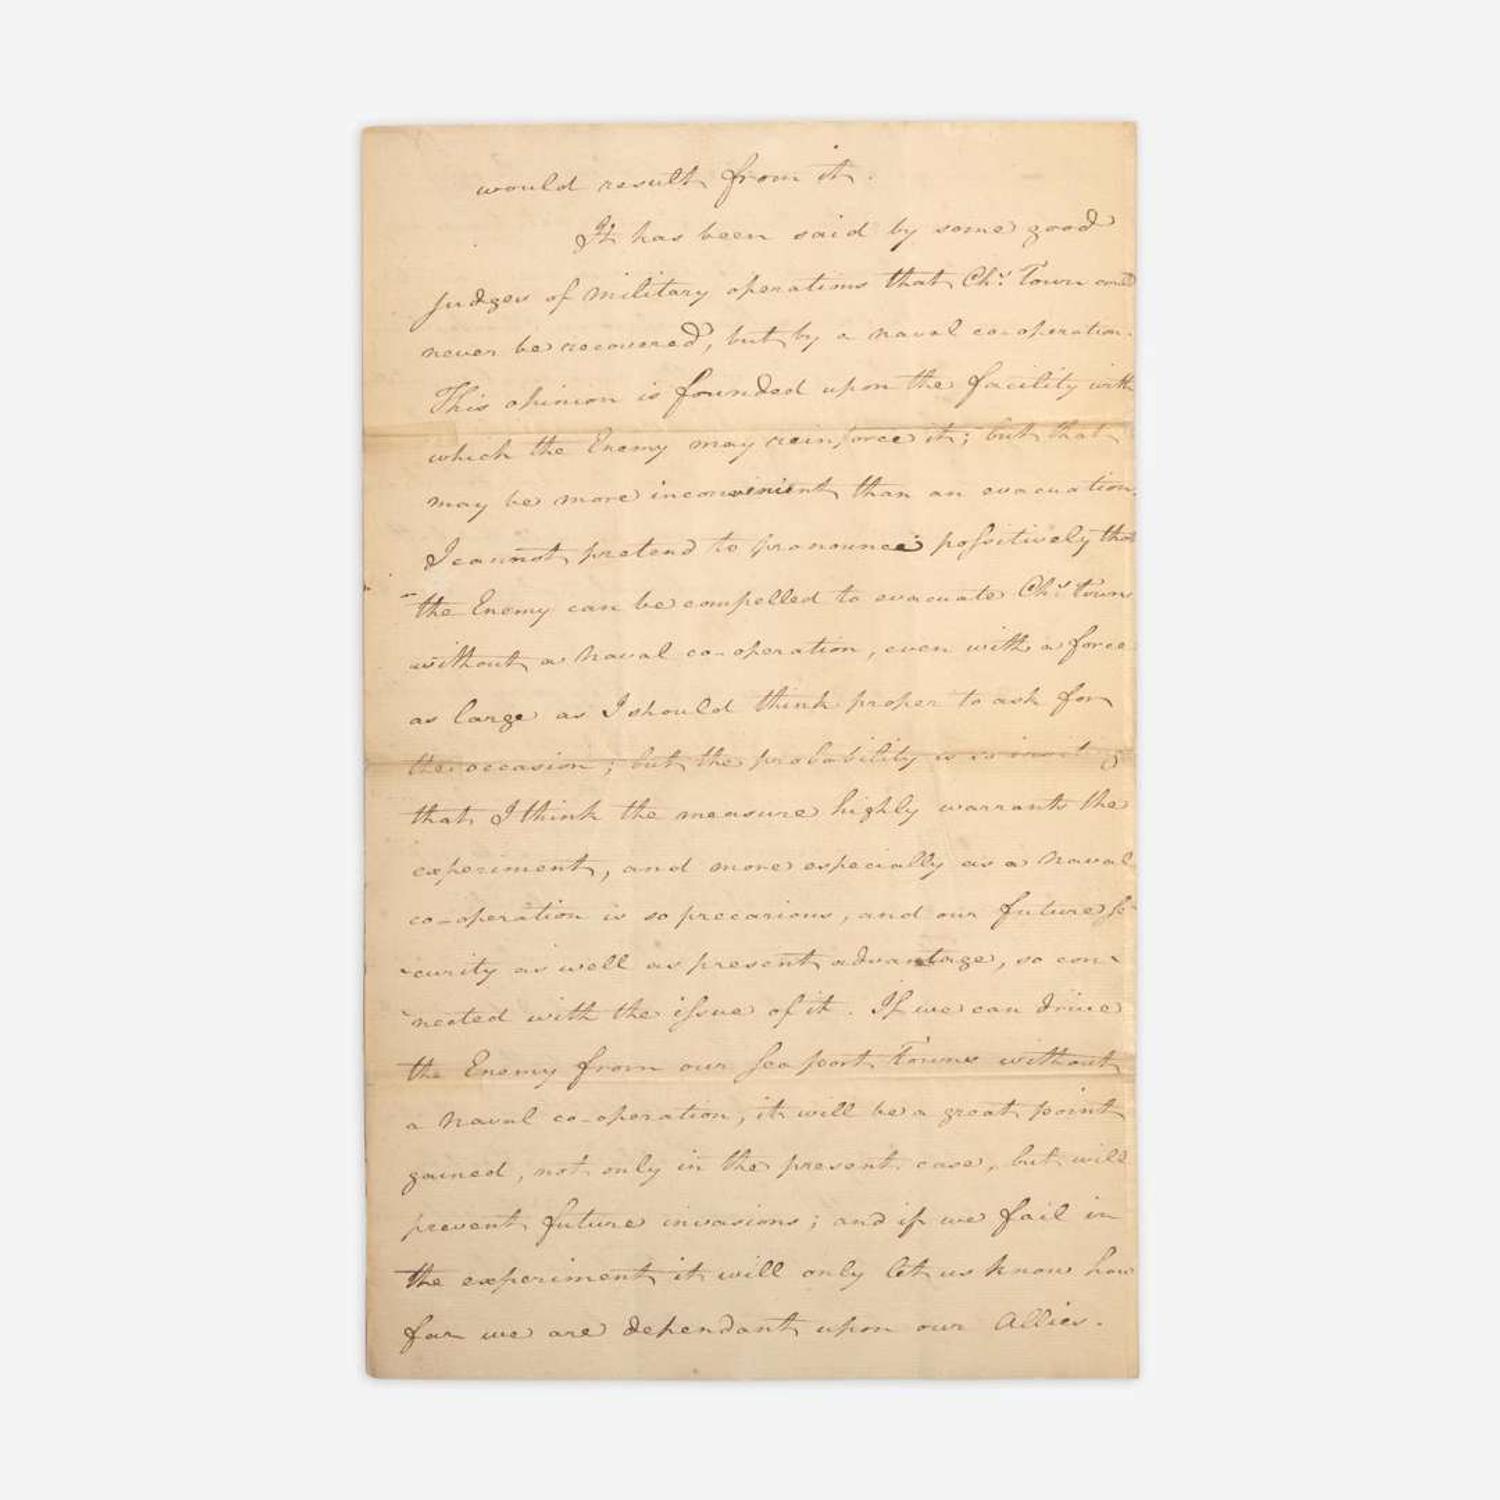 would result from it.
It has been said by some good
judges of military operations that Chs. Town could
never be recovered, but by a naval co-operation.
This opinion is founded upon the facility with
which the Enemy may reinforce it; but that
may be more inconvenient than an evacuation.
I cannot pretend to pronounce possitively that
the Enemy can be compelled to evacuate Chs. town
without a naval co-operation, even with a force
as large as I should think proper to ask for
the occasion; but the probability is so inviting
that I think the measure highly warrants the
experiment, and more especially as a naval
co-operation is so precarious, and our future se-
-curity as well as present advantage, so con-
-nected with the issue of it. If we can drive
the Enemy from our Sea port Towns without
a naval co-operation, it will be a great point
gained, not only in the present case, but will
prevent future invasions; and if we fail in
the experiment it will only let us know how
far we are dependant upon our Allies.